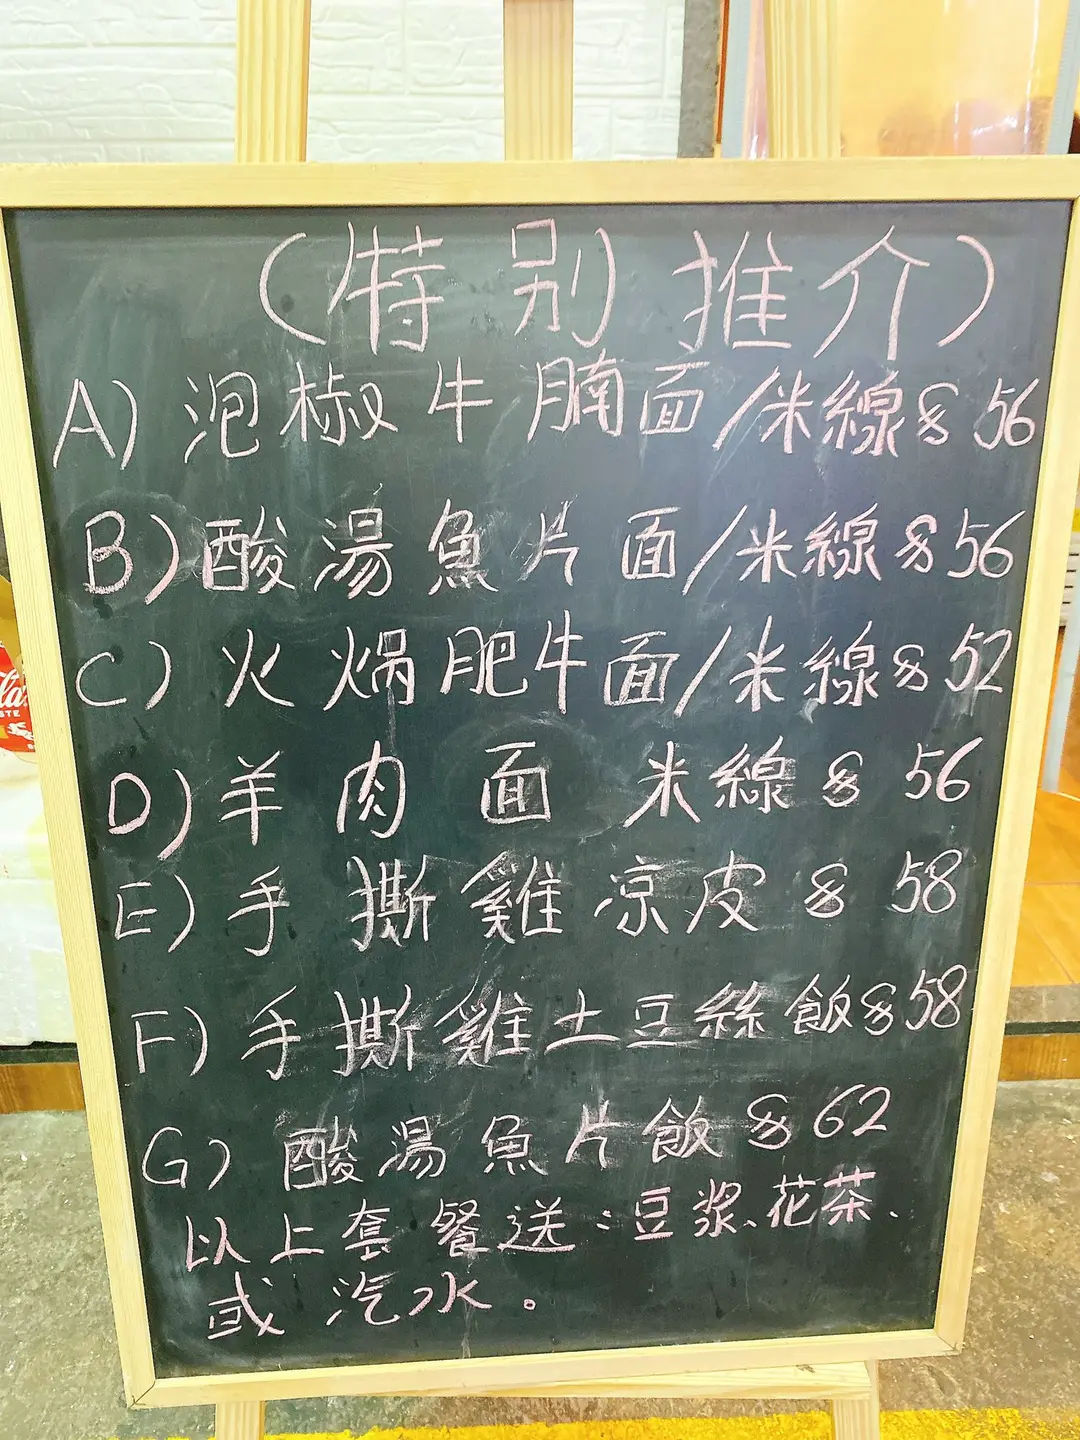 (特别推介)
A) 泡椒牛腩面/米線$56
B) 酸湯魚片面/米線$56
C) 火焗肥牛面/米線$52
D) 羊肉面 米線$56
E) 手撕雞凉皮$58
F) 手撕雞土豆絲飯$58
G) 酸湯魚片飯$62
以上套餐送：豆漿、花茶、
或汽水。